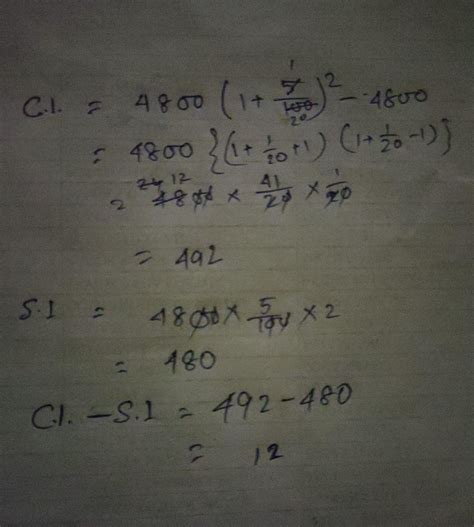 C.I. = 4800 (1 + 5/100)^2 - 4800
1
20
= 4800 {(1 + 1/20 + 1) (1 + 1/20 - 1)}
24 12
= 4800 × 41/20 × 1/20
= 492
S.I = 4800 × 5/100 × 2
= 480
C.I. - S.I = 492 - 480
= 12